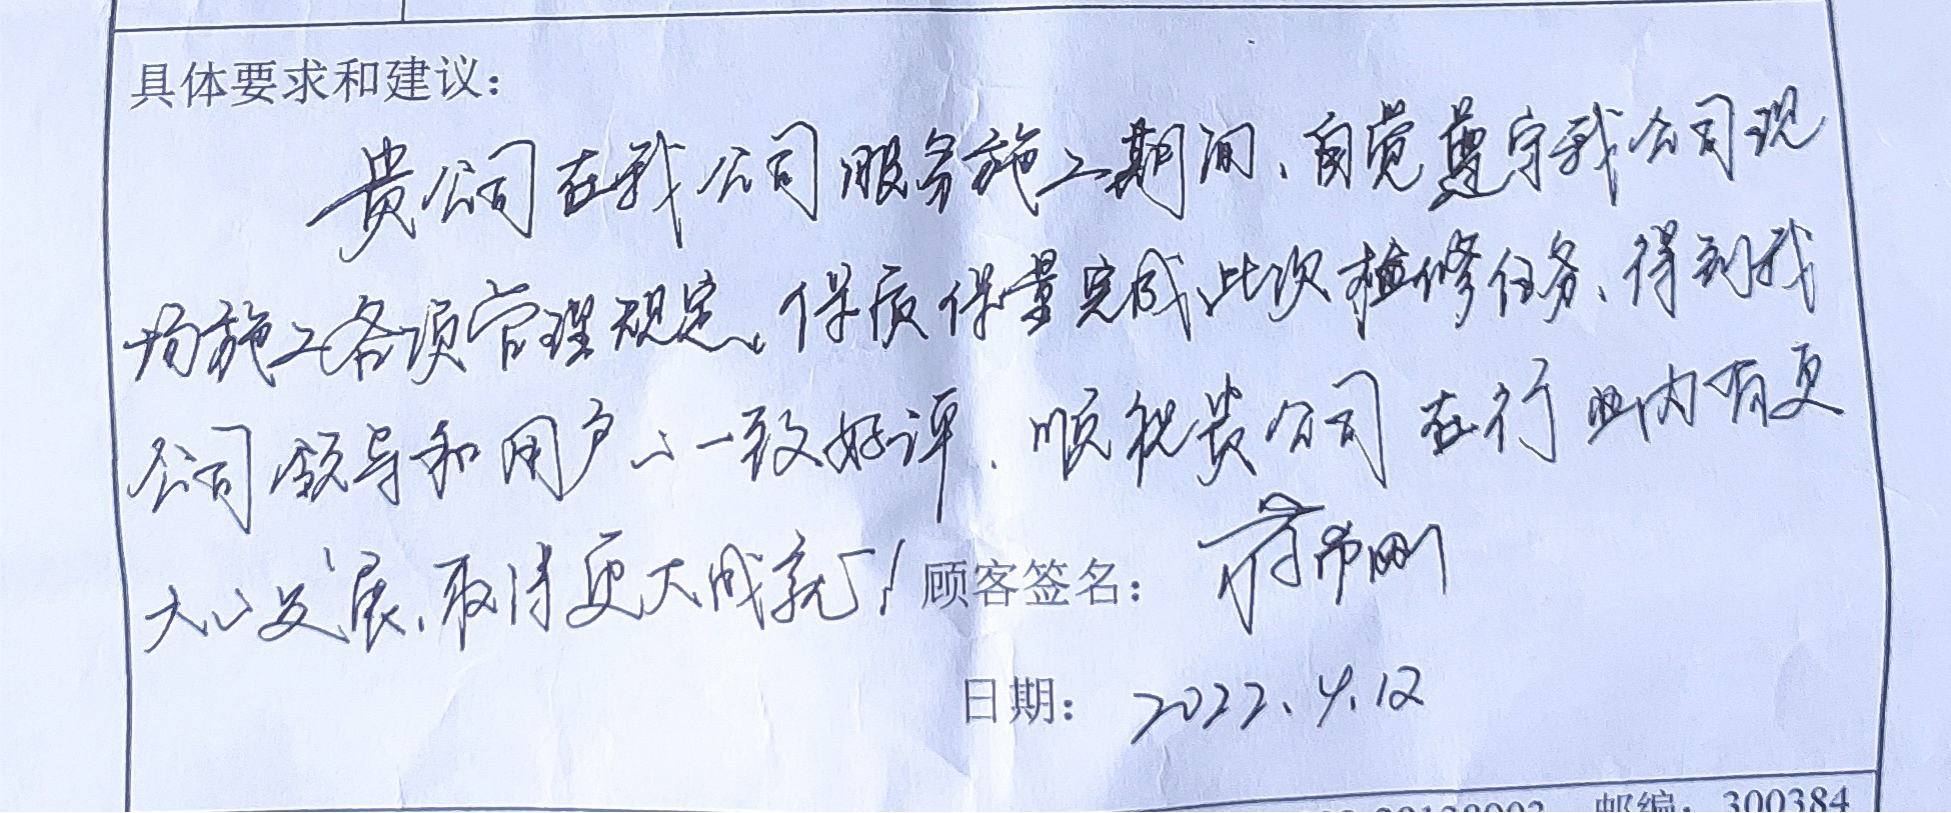 具体要求和建议：
贵公司在我公司服务施工期间、自觉遵守我公司现
场施工各项管理规定、保质保量完成此次检修任务、得到我
公司领导和用户的一致好评、顺祝贵公司在行业内有更
大的发展、取得更大成就！
顾客签名：
日期： 2022.4.12
邮编：300384